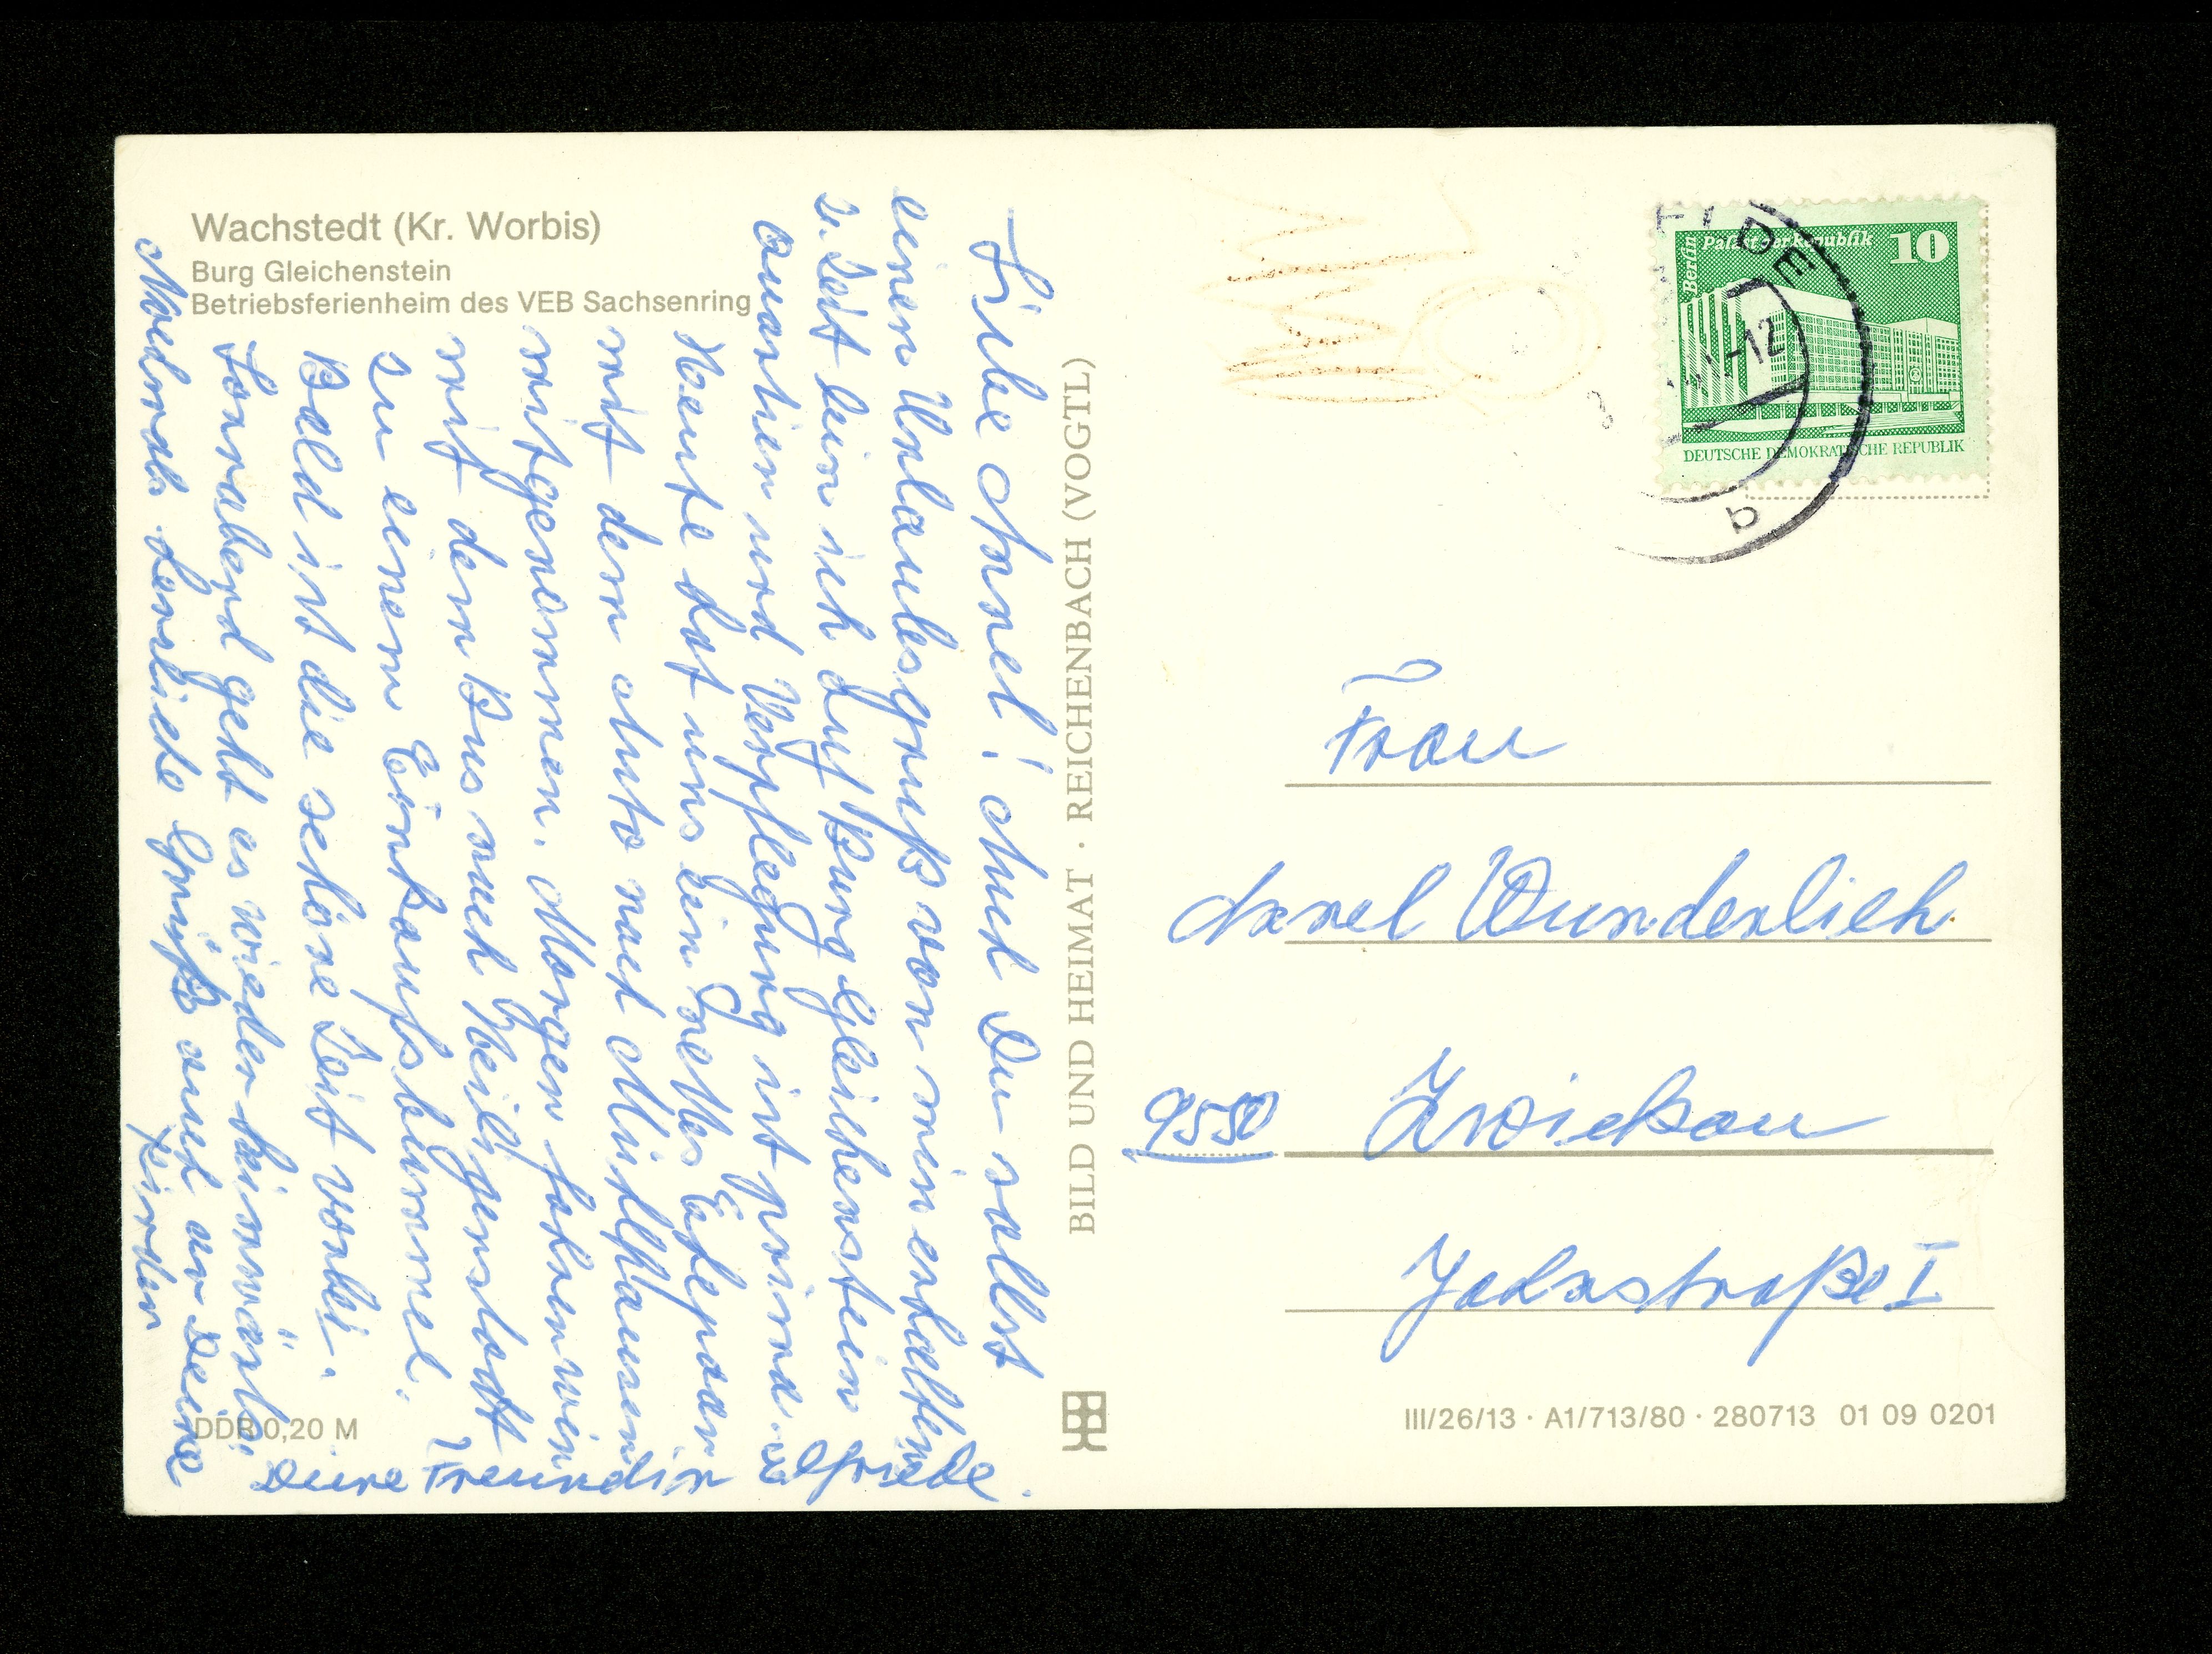 Wachstedt (Kr. Worbis)
Burg Gleichenstein
Betriebsferienheim des VEB Sachsenring
Liebe Annel! Auch Du sollst
einen Urlaubsgruß von mir erhalten
z. Zeit bin ich auf Burg Gleichenstein
Quartier und Verpflegung ist prima.
Heute hat uns ein nettes Ehepaar
mit dem Auto nach Mühlhausen
mitgenommen. Morgen fahren wir
mit dem Bus nach Heiligenstadt
zu einem Einkaufsbummel.
Bald ist die schöne Zeit vorbei.
Sonnabend geht es wieder heimwärts.
Nochmals herzliche Grüße auch an Deine
Kinder
Deine Freundin Elfriede.
DDR 0,20 M
BILD UND HEIMAT · REICHENBACH (VOGTL)
Berlin
Palast der Republik
10
DEUTSCHE DEMOKRATISCHE REPUBLIK
-12
b
Frau
Annel Wunderlich
9550 Zwickau
Jahnstraße I
III/26/13 · A1/713/80 · 280713 01 09 0201